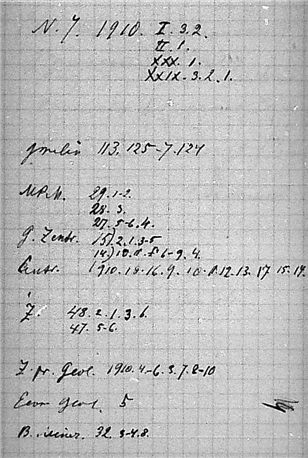 N. J. 1910. I. 3. 2.
II. 1.
XXX. 1.
XXIX. 3. 2. 1.
Gmelin 113. 125-7. 124
M.P.M. 29. 1-2.
28. 3.
27. 5-6. 4.
G. Zentr. 15) 2. 1. 3-5
14.) 6-9. 4.
Centr. 1910. 18-16. 9. 12. 13. 17 15. 14.
Z. 48. 2. 1. 3. 6.
47. 5-6.
Z. pr. Geol. 1910. 4-6. 3. 7. 8-10
Econ Geol. 5
B. 32. 3-4. 8.